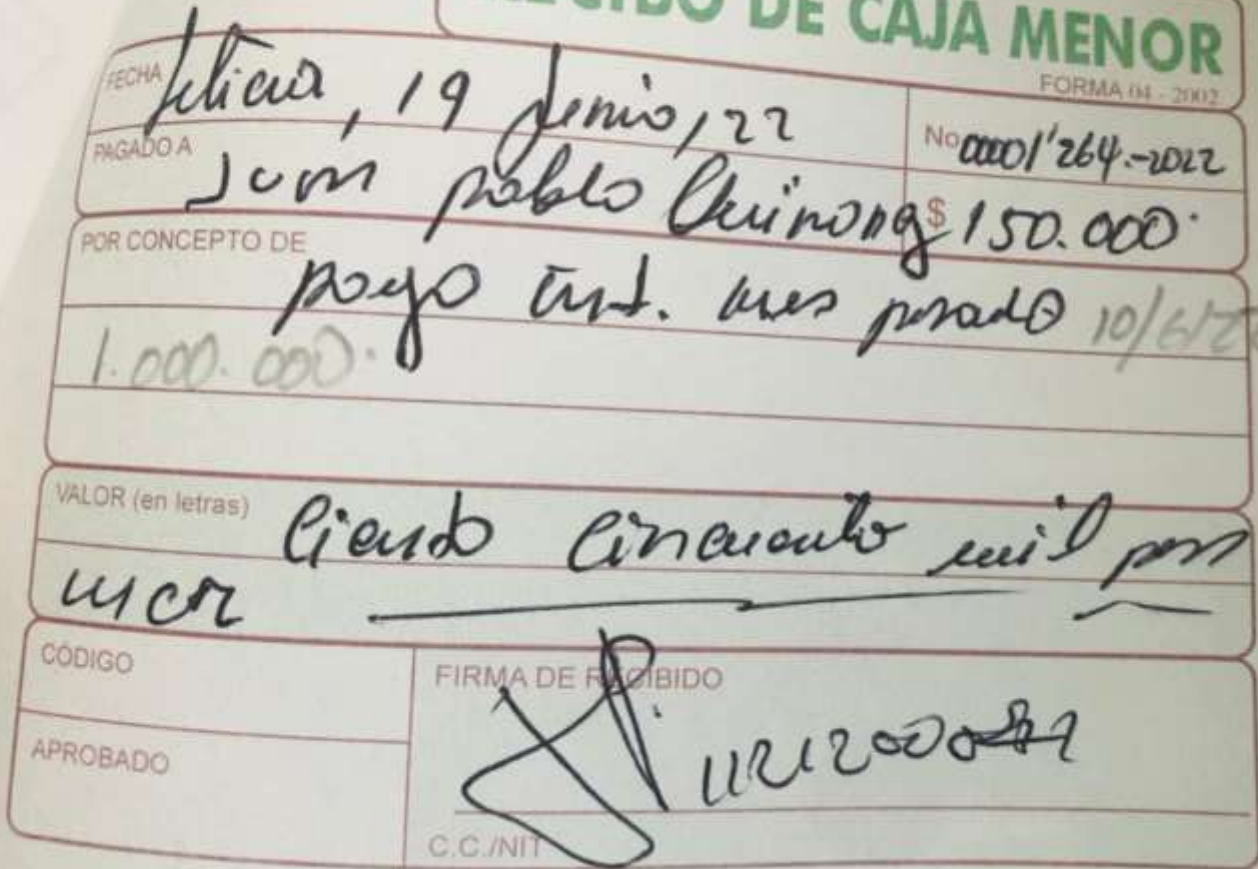 RECIBO DE CAJA MENOR
FORMA 04 - 2002
FECHA Leticia, 19 Junio, 22
No 00001'264.-2022
PAGADO A Juan pablo
$ 150.000.
POR CONCEPTO DE
pago int. mes pasado 10/6/2
1.000.000.
VALOR (en letras) Ciento Cincuenta mil
mcr
CÓDIGO
FIRMA DE RECIBIDO
APROBADO
C.C./NIT